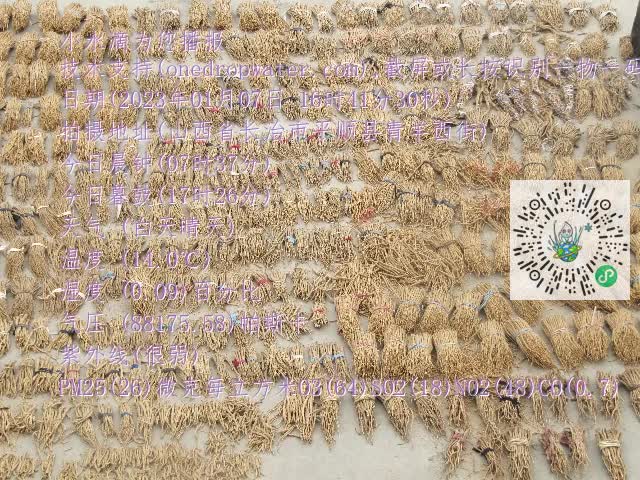 小水滴为您播报
技术支持(onedropwater.com),截屏或长按识别一物一码
日期(2023年01月07日 16时11分36秒)
拍摄地址(山西省长治市平顺县青羊西街)
今日晨钟(07时37分)
今日暮鼓(17时26分)
天气 (白天晴天)
温度 (14.0℃)
湿度 (0.09)百分比
气压 (88175.58)帕斯卡
紫外线(很弱)
PM25(26)微克每立方米O3(64)SO2(18)NO2(48)CO(0.7)